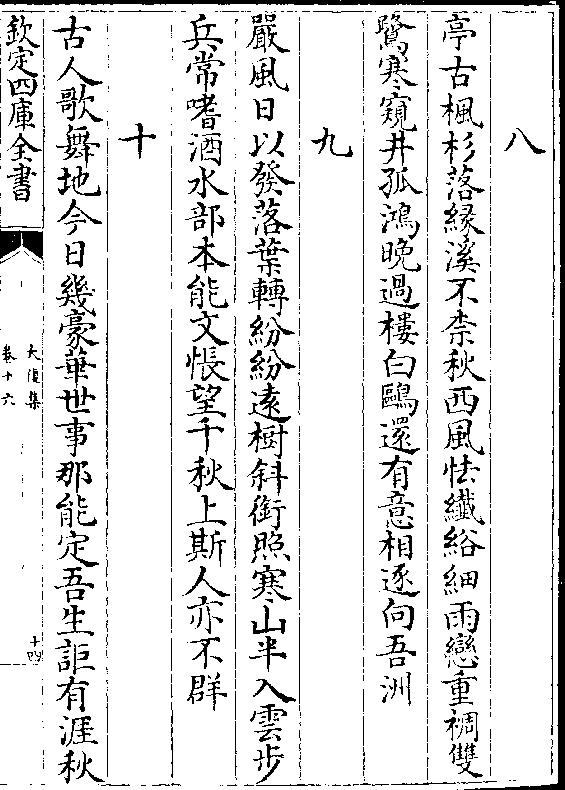 八
亭古楓杉落緣溪不柰秋西風怯纖綌細雨戀重裯雙
鷺寒窺井孤鴻晚過樓白鷗還有意相逐向吾洲
九
嚴風日以發落葉轉紛紛遠樹斜銜照寒山半入雲步
兵常嗜酒水部本能文悵望千秋上斯人亦不群
十
古人歌舞地今日幾豪華世事那能定吾生詎有涯秋
欽定四庫全書
大復集
卷十六
十四